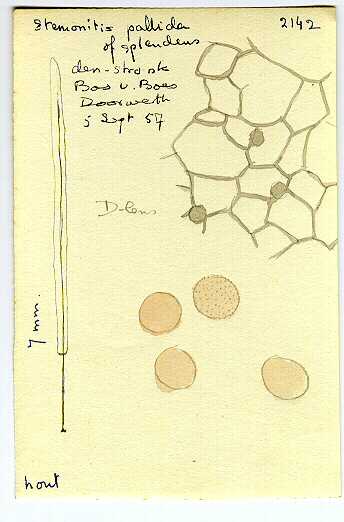 Stemonitis pallida 2142
of splendens
den-strook
Bos v. Boes
Doorwerth
5 Sept 57
D-lens
7 mm.
hout